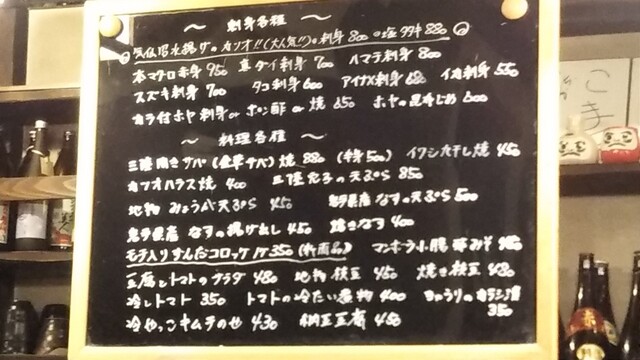 ～ 刺身各種 ～
◎気仙沼水揚げのカツオ!!(大人気!!)の刺身 800 の塩タタキ 880◎
本マグロ赤身 950 真ダイ刺身 700 ハマチ刺身 800
スズキ刺身 700 タコ刺身 600 アイナメ刺身 680 イカ刺身 550
カラ付ホヤ 刺身 or ポン酢 or 焼 650 ホヤの昆布じめ 600
～ 料理各種 ～
三陸開きサバ 焼 880 (半身500) イワシ丸干し焼 450
カツオハラス焼 400 三陸穴子の天ぷら 850
地物 みょうが天ぷら 450 岩手県産 なすの天ぷら 500
岩手県産 なすの揚げ出し 450 焼きなす 400
モチ入りずんだコロッケ 1ケ350 (新商品) マンボウ小腸
豆腐とトマトのサラダ 480 地物 枝豆 450 焼き枝豆 480
冷しトマト 350 トマトの冷たい煮物 400 きゅうりのカラシ漬 350
冷やっこキムチのせ 430 納豆豆腐 450
こま